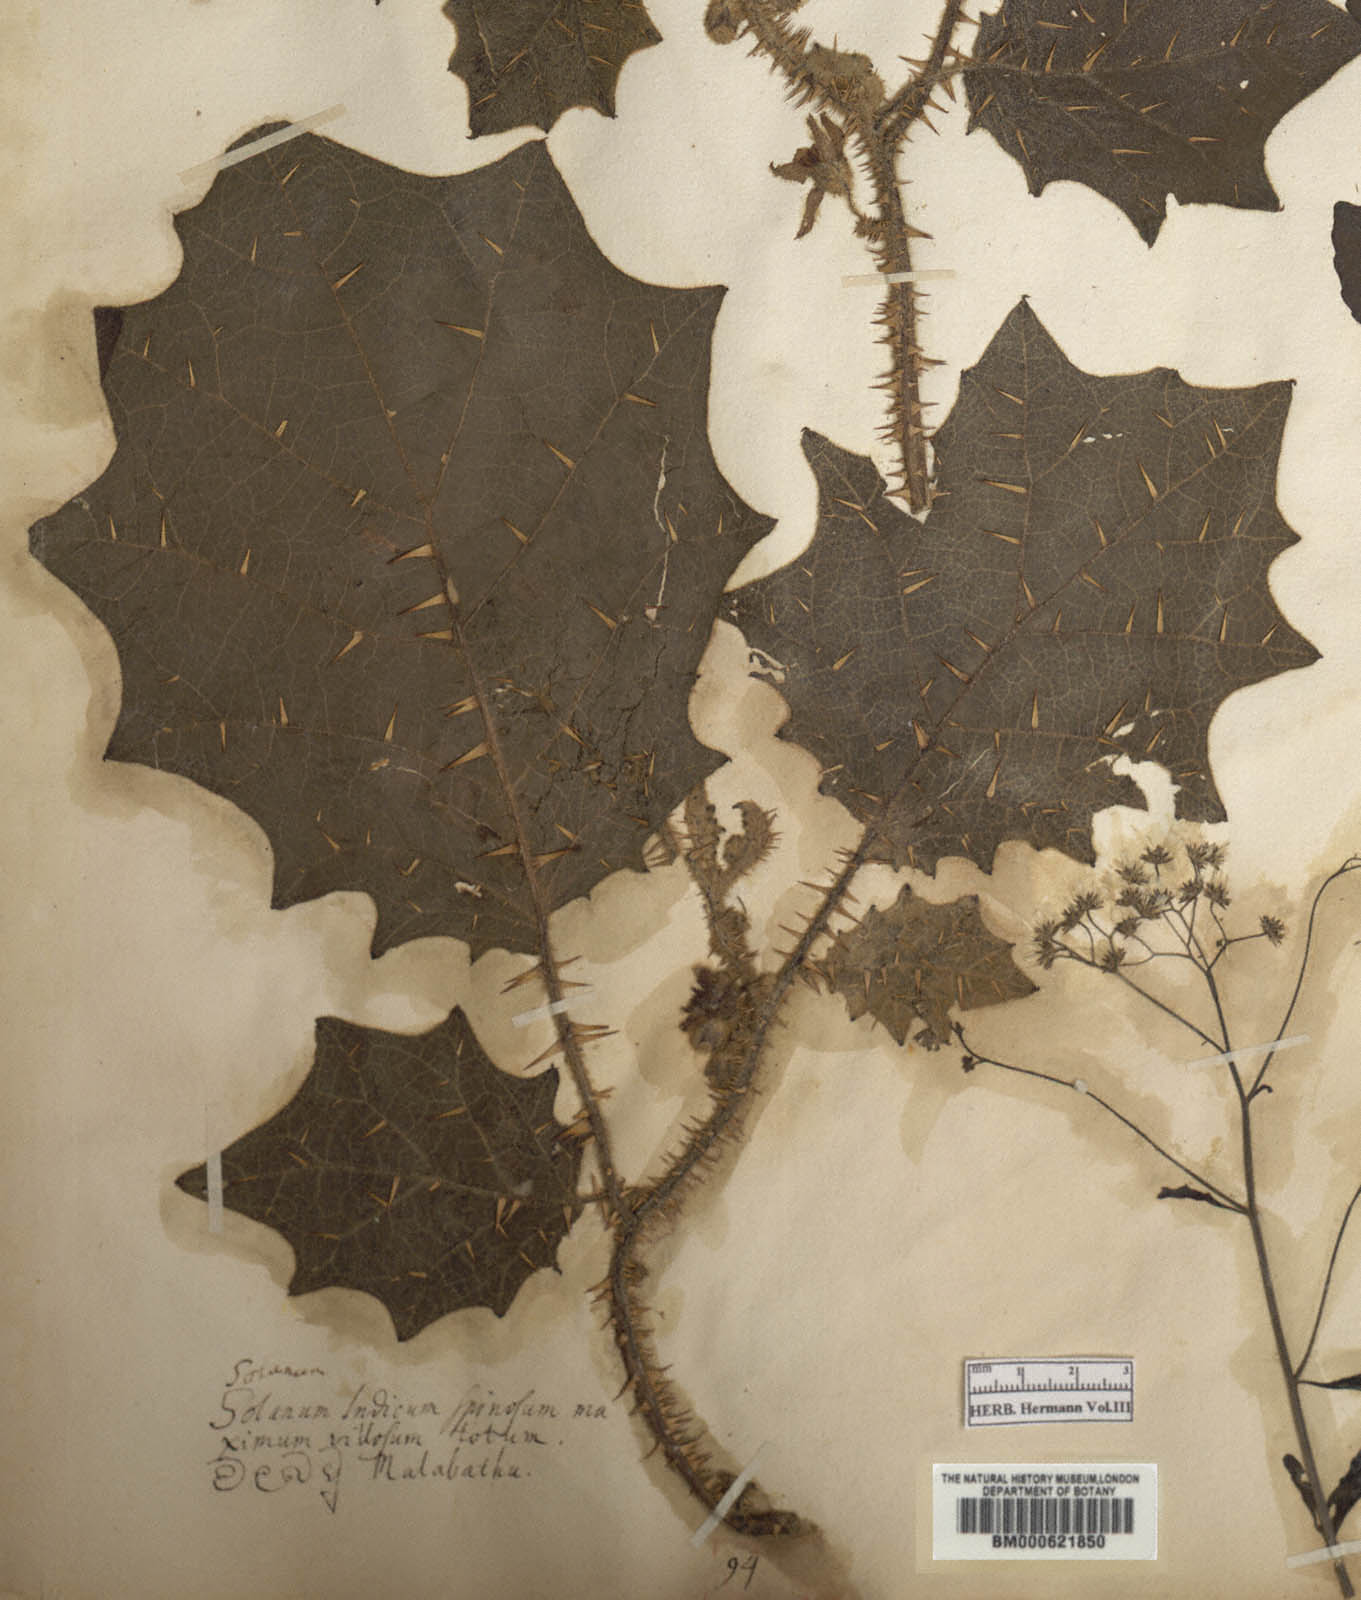 Solanum
Solanum Indicum Spinosum ma
ximum villosum totum.
Malabathu.
94
mm 1 2 3
HERB. Hermann Vol.III
THE NATURAL HISTORY MUSEUM,LONDON
DEPARTMENT OF BOTANY
BM000621850